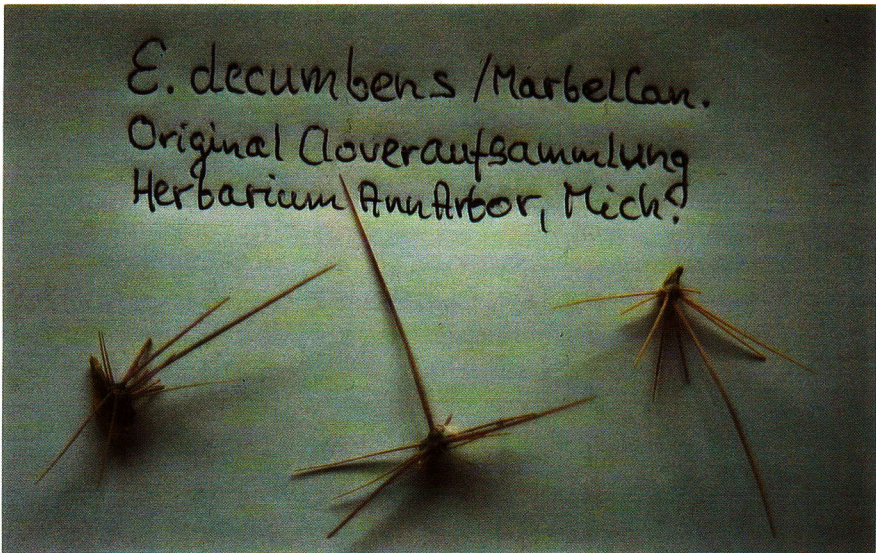 E. decumbens /MarbelCan.
Original Cloveraufsammlung
Herbarium AnnArbor, Mich.